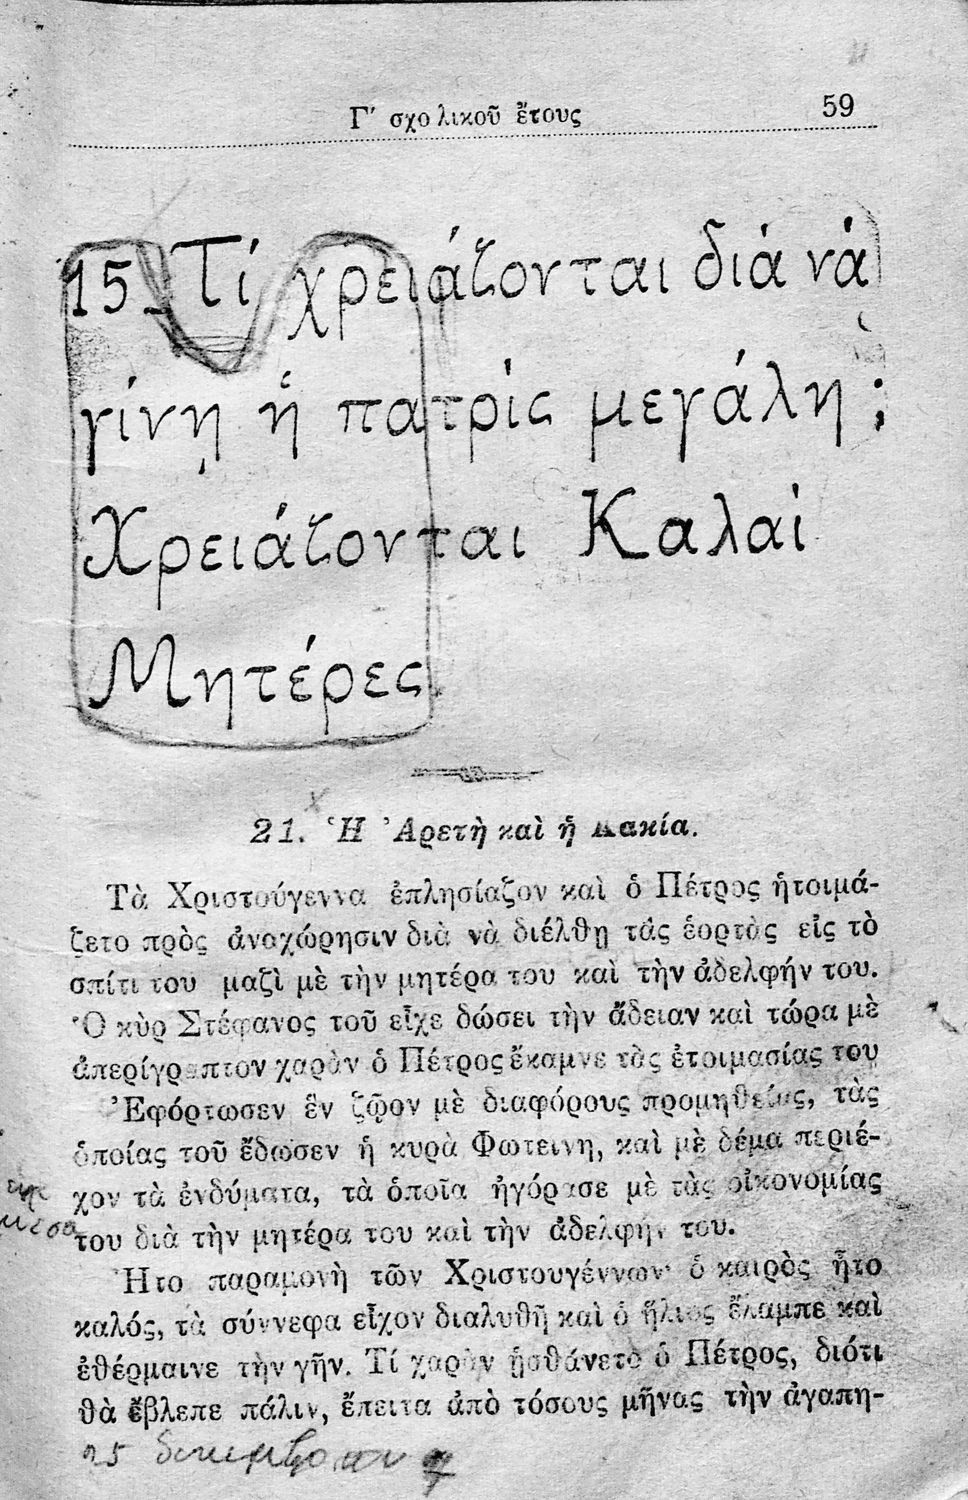 Γ΄ σχολικοῦ ἔτους 59
15. Τί χρειάζονται διά νά
γίνῃ ἡ πατρίς μεγάλη;
Χρειάζονται Καλαί
Μητέρες
21. Ἡ Ἀρετὴ καὶ ἡ Κακία.
Τὰ Χριστούγεννα ἐπλησίαζον καὶ ὁ Πέτρος ἡτοιμά-
ζετο πρὸς ἀναχώρησιν διὰ νὰ διέλθῃ τὰς ἑορτὰς εἰς τὸ
σπίτι του μαζὶ μὲ τὴν μητέρα του καὶ τὴν ἀδελφήν του.
Ὁ κὺρ Στέφανος τοῦ εἶχε δώσει τὴν ἄδειαν καὶ τώρα μὲ
ἀπερίγραπτον χαρὰν ὁ Πέτρος ἔκαμνε τὰς ἑτοιμασίας του
Ἐφόρτωσεν ἓν ζῷον μὲ διαφόρους προμηθείας, τὰς
ὁποίας τοῦ ἔδωσεν ἡ κυρὰ Φωτεινη, καὶ μὲ δέμα περιέ-
χον τὰ ἐνδύματα, τὰ ὁποῖα ἠγόρασε μὲ τὰς οἰκονομίας
του διὰ τὴν μητέρα του καὶ τὴν ἀδελφήν του.
Ἦτο παραμονὴ τῶν Χριστουγέννων· ὁ καιρὸς ἦτο
καλός, τὰ σύννεφα εἶχον διαλυθῆ καὶ ὁ ἥλιος ἔλαμπε καὶ
ἐθέρμαινε τὴν γῆν. Τί χαρὰν ᾐσθάνετο ὁ Πέτρος, διότι
θὰ ἔβλεπε πάλιν, ἔπειτα ἀπὸ τόσους μῆνας τὴν ἀγαπη-